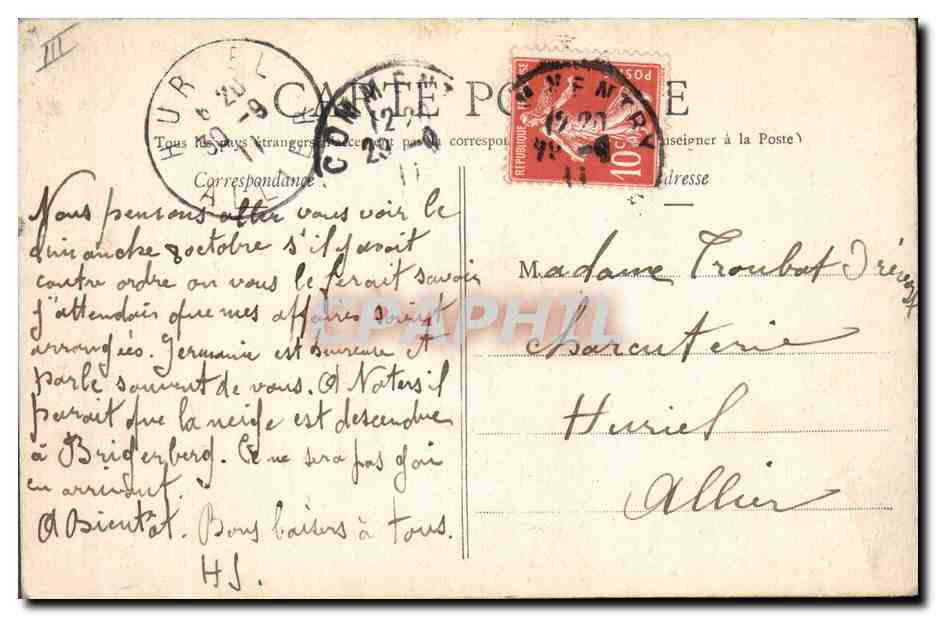 III
HURIEL
* 20
30 -9
11
ALLIER
COMMEN
12 20
29 -9
11
COMMENTRY
12 20
29 -9
11
REPUBLIQUE FRANÇAISE
POSTES
10 C
CARTE POSTALE
Tous les pays étrangers n'acceptent pas la correspon seigner à la Poste)
Correspondance
Adresse
Nous pensons aller vous voir le
dimanche 8 octobre s'il y avait
contre ordre on vous le ferait savoir
J'attendais que mes affaires soient
arrangées. Germaine est heureuse et
parle souvent de vous. A Naters il
parait que la neige est descendue
à Brigerberg. Ce ne sera pas gai
en arrivant.
A Bientôt. Bons baisers à tous.
HJ.
Madame Troubat
Charcuterie
Huriel
Allier
CPAPHIL